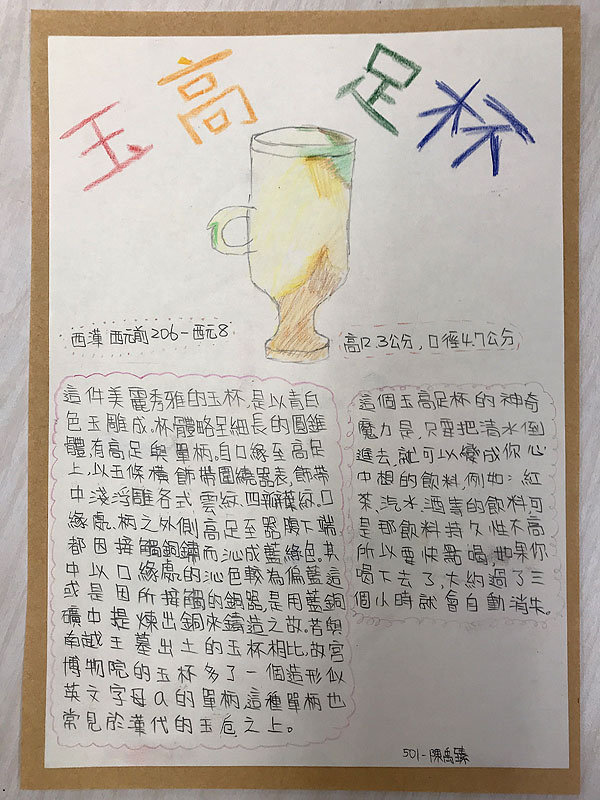 玉高足杯
西漢 西元前206-西元8
高12.3公分，口徑4.7公分
這件美麗秀雅的玉杯，是以青白
色玉雕成。杯體略呈細長的圓錐
體，有高足與單柄。自口緣至高足
上，以五條橫飾帶圍繞器表，飾帶
中淺浮雕各式雲紋、四瓣葉紋。口
緣處、柄之外側、高足至器腹下端
都因接觸銅鏽而沁成藍綠色。其
中以口緣處的沁色較為偏藍，這
或是因所接觸的銅器，是用藍銅
礦中提煉出銅來鑄造之故。若與
南越王墓出土的玉杯相比，故宮
博物院的玉杯多了一個造形似
英文字母a的單柄，這種單柄也
常見於漢代的玉卮之上。
這個玉高足杯的神奇
魔力是，只要把清水倒
進去，就可以變成你心
中想的飲料，例如：紅
茶、汽水、酒等的飲料，可
是那飲料持久性不高
所以要快點喝，如果你
喝下去了，大約過了三
個小時就會自動消失。
501-陳禹臻